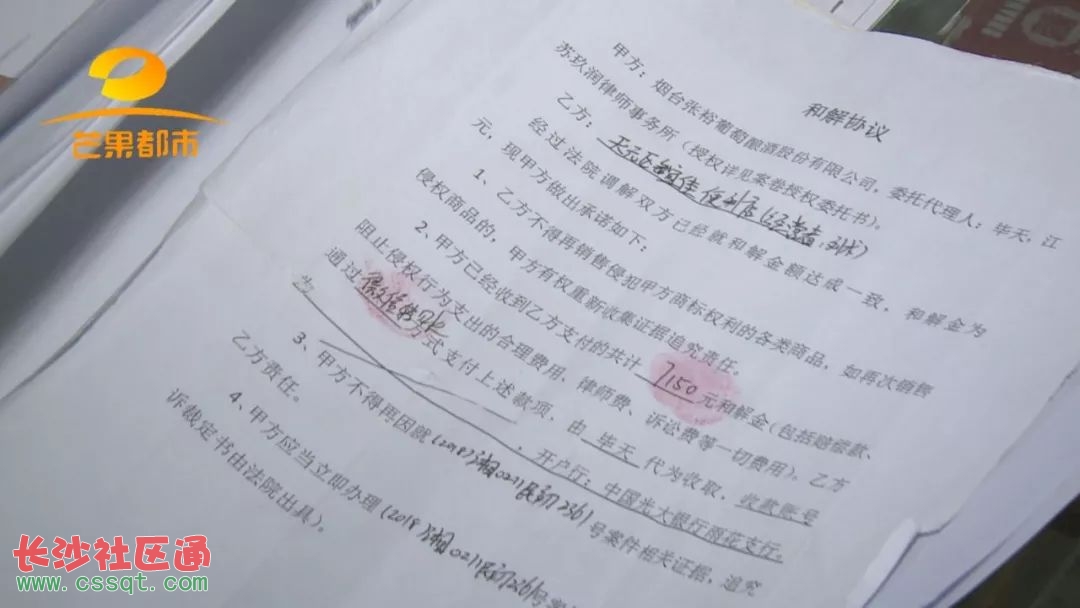 芒果都市
和解协议
甲方:烟台张裕葡萄酿酒股份有限公司,委托代理人:毕天,江
苏玖润律师事务所(授权详见案卷授权委托书)。
乙方:天元区 佳便利店(经营者:
经过法院调解双方已经就和解金额达成一致,和解金为
元,现甲方做出承诺如下:
1、乙方不得再销售侵犯甲方商标权利的各类商品,如再次销售
侵权商品的,甲方有权重新收集证据追究责任。
2、甲方已经收到乙方支付的共计7150元和解金(包括赔偿款、
阻止侵权行为支出的合理费用、律师费、诉讼费等一切费用)。乙方
通过微信转账方式支付上述款项,由毕天代为收取,收款账号
为 ,开户行:中国光大银行雨花支行。
3、甲方不得再因就(2018)湘0211民初2361号案件相关证据,追究
乙方责任。
4、甲方应当立即办理(2018)湘0211民初2361号案
诉裁定书由法院出具)。
长沙社区通
www.cssqt.com